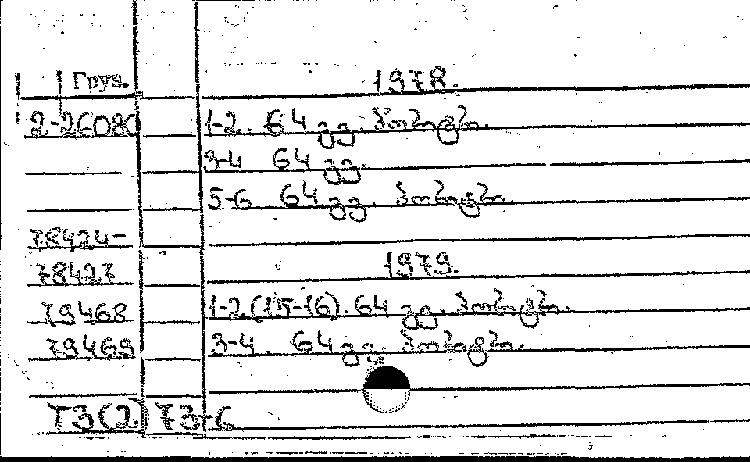 Груз. 1978.
2-26080 1-2. 64 გვ.
3-4 64 გვ.
5-6 64 გვ.
78424-
78427 1979.
79468 1-2(15-16). 64 გვ.
79469 3-4. 64 გვ.
ТЗ(2) 73-6